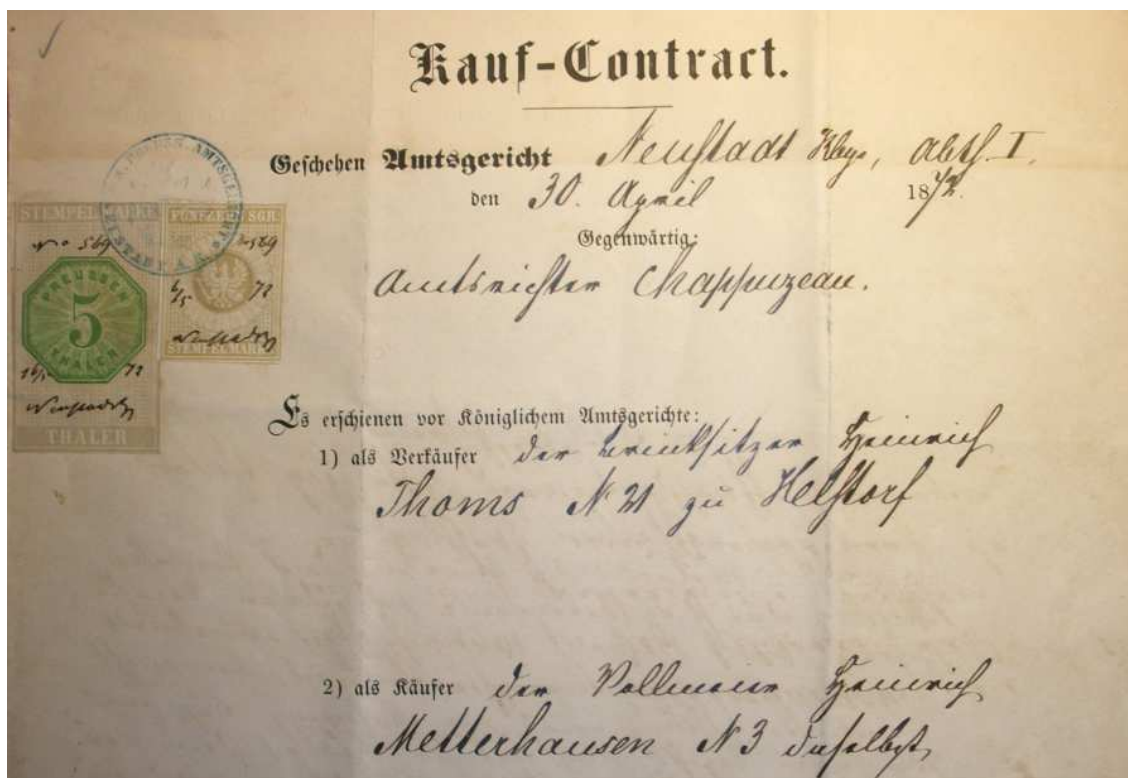 Kauf-Contract.
Geschehen Amtsgericht Neustadt Rbge, Abth. I.
den 30. April 1872.
Gegenwärtig:
Amtsrichter Chappuzeau.
STEMPELMARKE
No 569
PREUSSEN
5
THALER
16/5 72
Neustadt
THALER
FÜNFZEHN SGR.
No 569
72
Neustadt
STEMPELMARKE
Es erschienen vor Königlichem Amtsgerichte:
1) als Verkäufer der Brinksitzer Heinrich
Thoms N 21 zu Helstorf
2) als Käufer der Vollmeier Heinrich
Metterhausen N 3 daselbst,